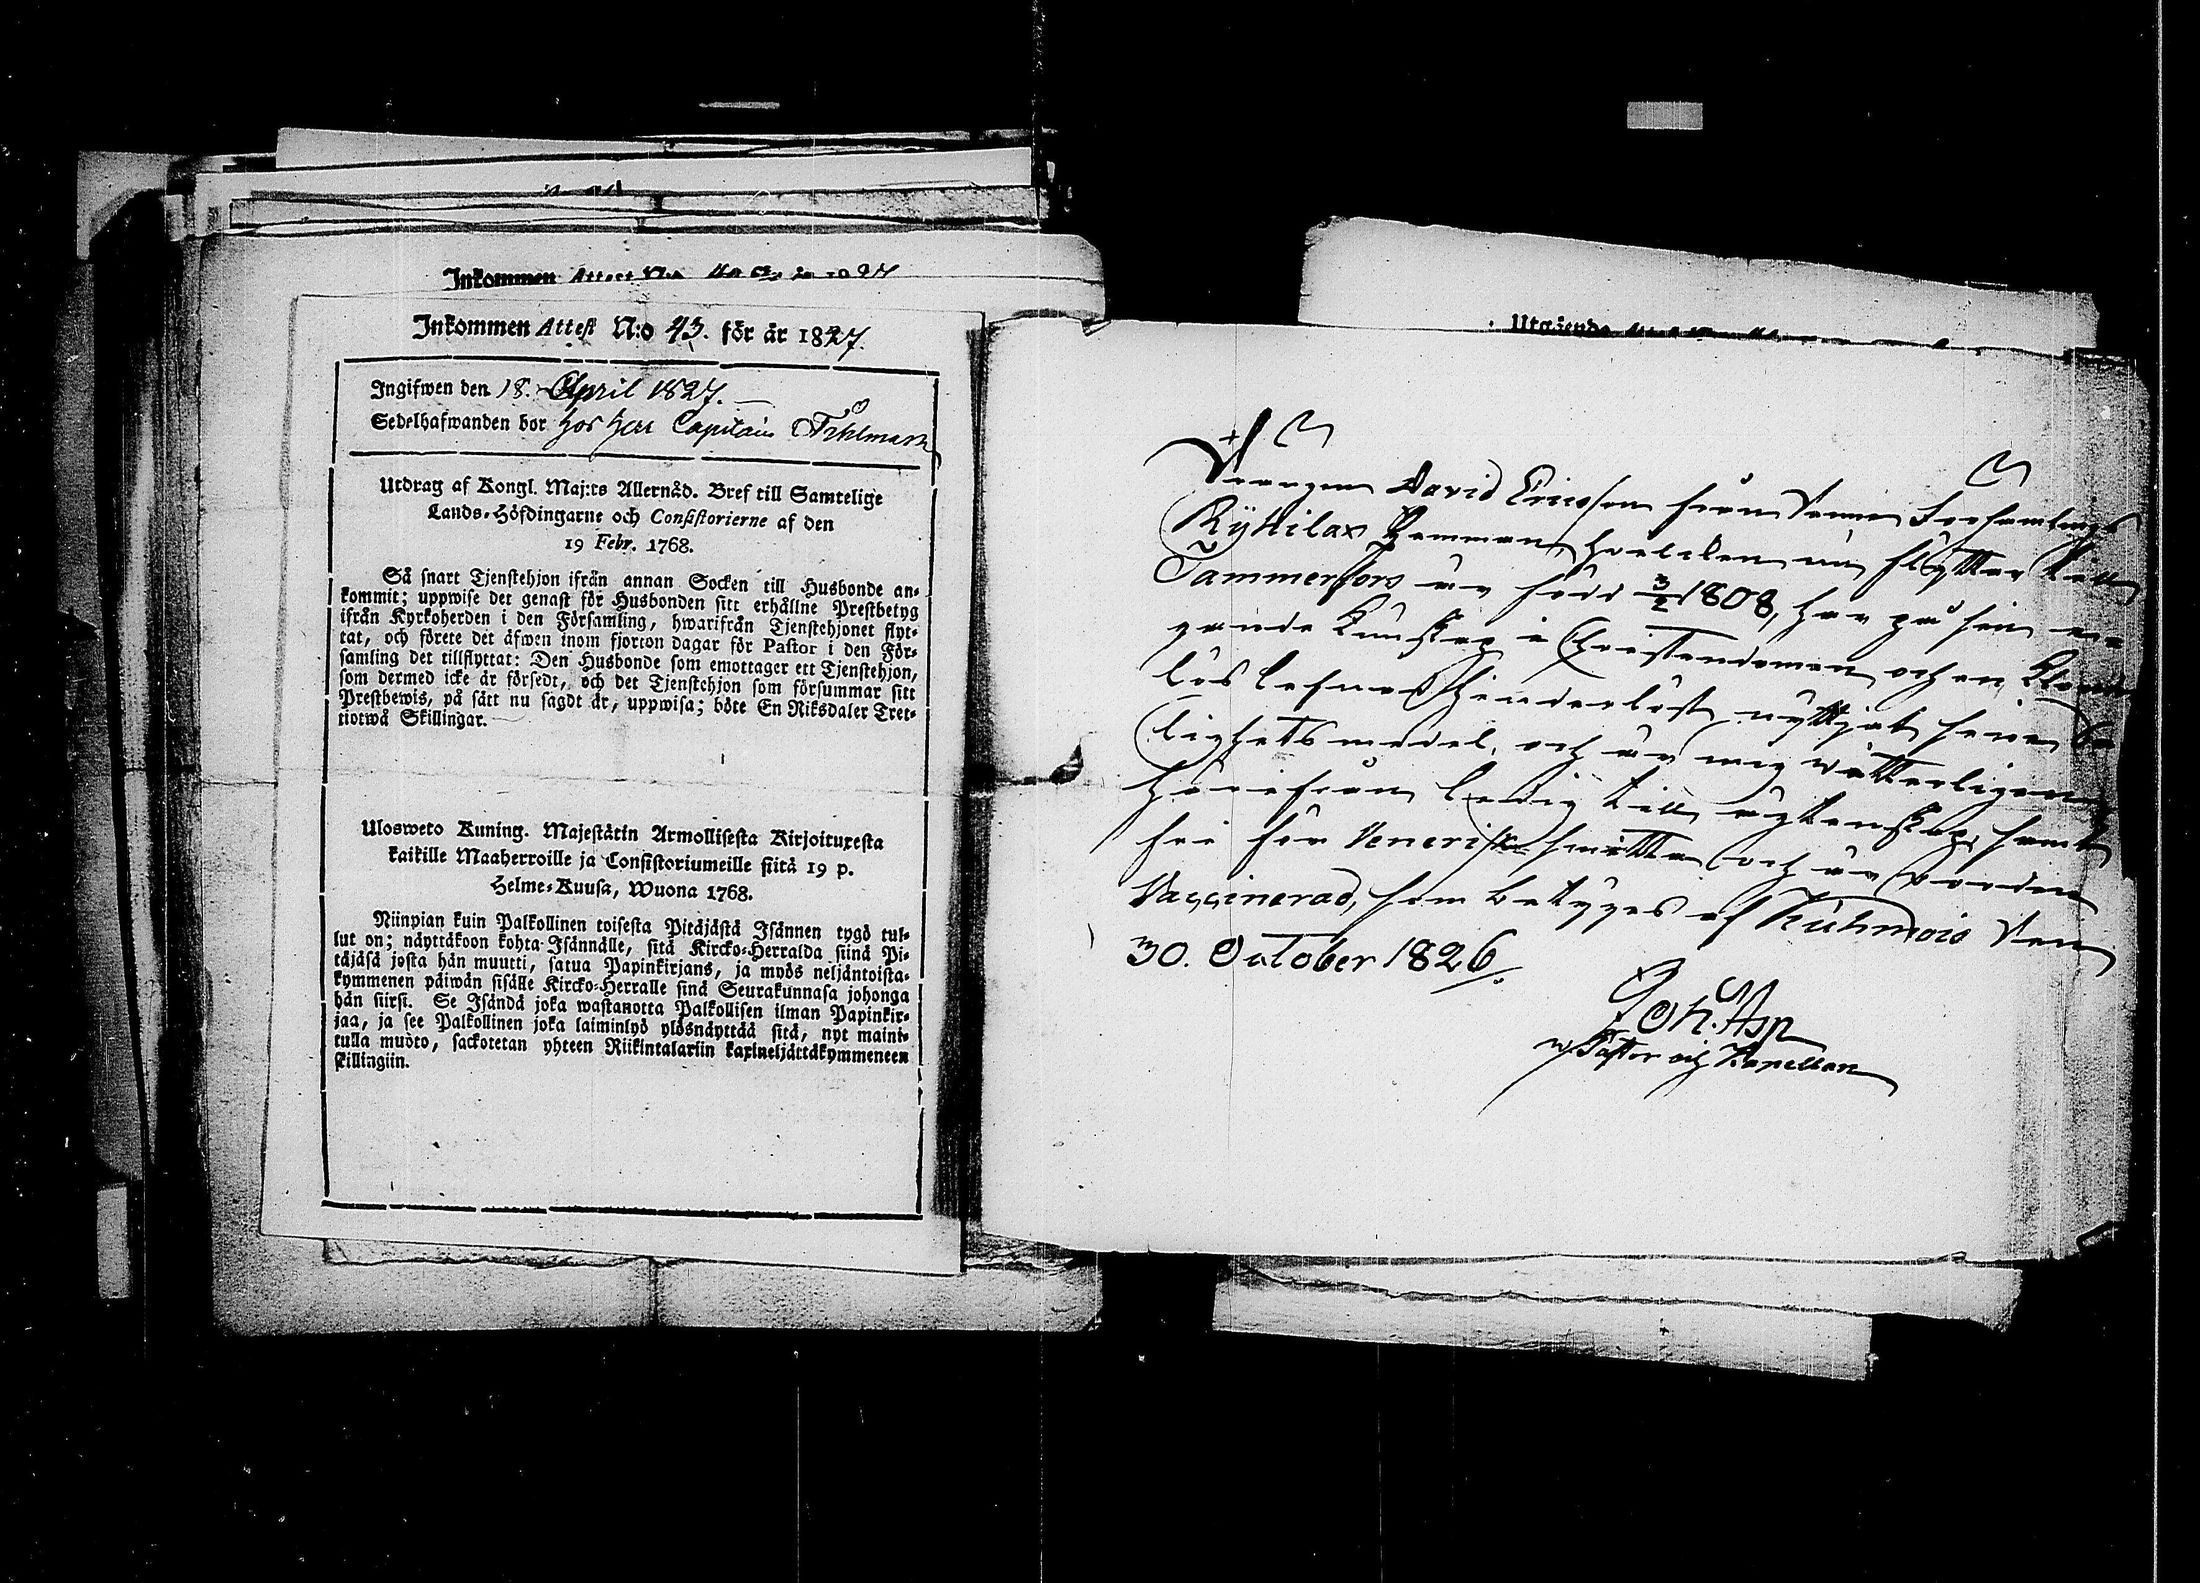 Inkommen Attest N:o
Inkommen Attest N:o 43. för år 1827.
Ingifwen den 18. April 1827.
Sedelhafwanden bor hos Herr Capitain
Utdrag af Kongl. Maj:ts Allernåd. Bref till Samtelige
Lands-Höfdingarne och Consistorierne af den
19 Febr. 1768.
Så snart Tjenstehjon ifrån annan Socken till Husbonde an-
kommit; uppwise det genast för Husbonden sitt erhållne Prestbetyg
ifrån Kyrkoherden i den Församling, hwarifrån Tjenstehjonet flyt-
tat, och förete det äfwen inom fjorton dagar för Pastor i den För-
samling det tillflyttat: Den Husbonde som emottager ett Tjenstehjon,
som dermed icke är försedt, och det Tjenstehjon som försummar sitt
Prestbewis, på sätt nu sagdt är, uppwisa; böte En Riksdaler Tret-
tiotwå Skillingar.
Ulosweto Kuning. Majestätin Armollisesta Kirjoituxesta
kaikille Maaherroille ja Consistoriumeille siitä 19 p.
Helme-Kuusa, Wuona 1768.
Niinpian kuin Palkollinen toisesta Pitäjästä Isännen tygö tul-
lut on; näyttäkoon kohta Isännälle, sitä Kircko-Herralda siinä Pi-
täjäsä josta hän muutti, satua Papinkirjans, ja myös neljäntoista-
kymmenen päiwän sisälle Kircko-Herralle sinä Seurakunnasa johonga
hän siirsi. Se Isändä joka wastanotta Palkollisen ilman Papinkir-
jaa, ja see Palkollinen joka laiminlyö ylösnäyttää sitä, nyt maini-
tulla muoto, sackotetan yhteen Riikintalariin kaxineljättäkymmeneen
skillingiin.
Utgående
Drängen David Ericsson från denna Församlings
Rykkilax Hemman, hvilken nu flyttar till
Tammerfors är född 3/2 1808, har på sin
gande Kunskap i Christendomen och en
lös lefnad hinderlöst nyttjat sine Sa-
lighets medel, och är mig witterligen
härifrån ledig till ägtenskap, samt
fri för Venerisk smitta och är worden
Vaccinerad, som betygas af Kuhmois den
30. October 1826.
Joh. Asp
v. Pastor och Kapellan